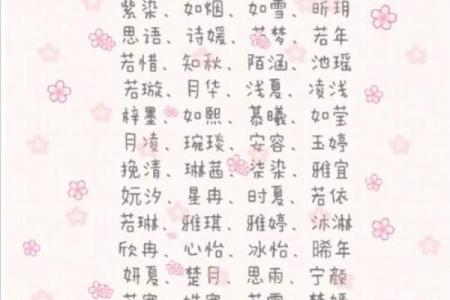 紫染、如烟、如雪、昕玥
思语、诗媛、若梦、若年
若惜、知秋、陌涵、池瑶
若璇、月华、浅夏、凌浅
梓墨、如熙、慕曦、如莹
月凌、琬琰、安容、玉婷
挽清、琳茜、柒染、雅宜
妧汐、星冉、时夏、若依
若琳、雅琪、雅婷、沐淋
欣冉、心怡、冰怡、晞年
妍夏、楚月、思雨、宁颜